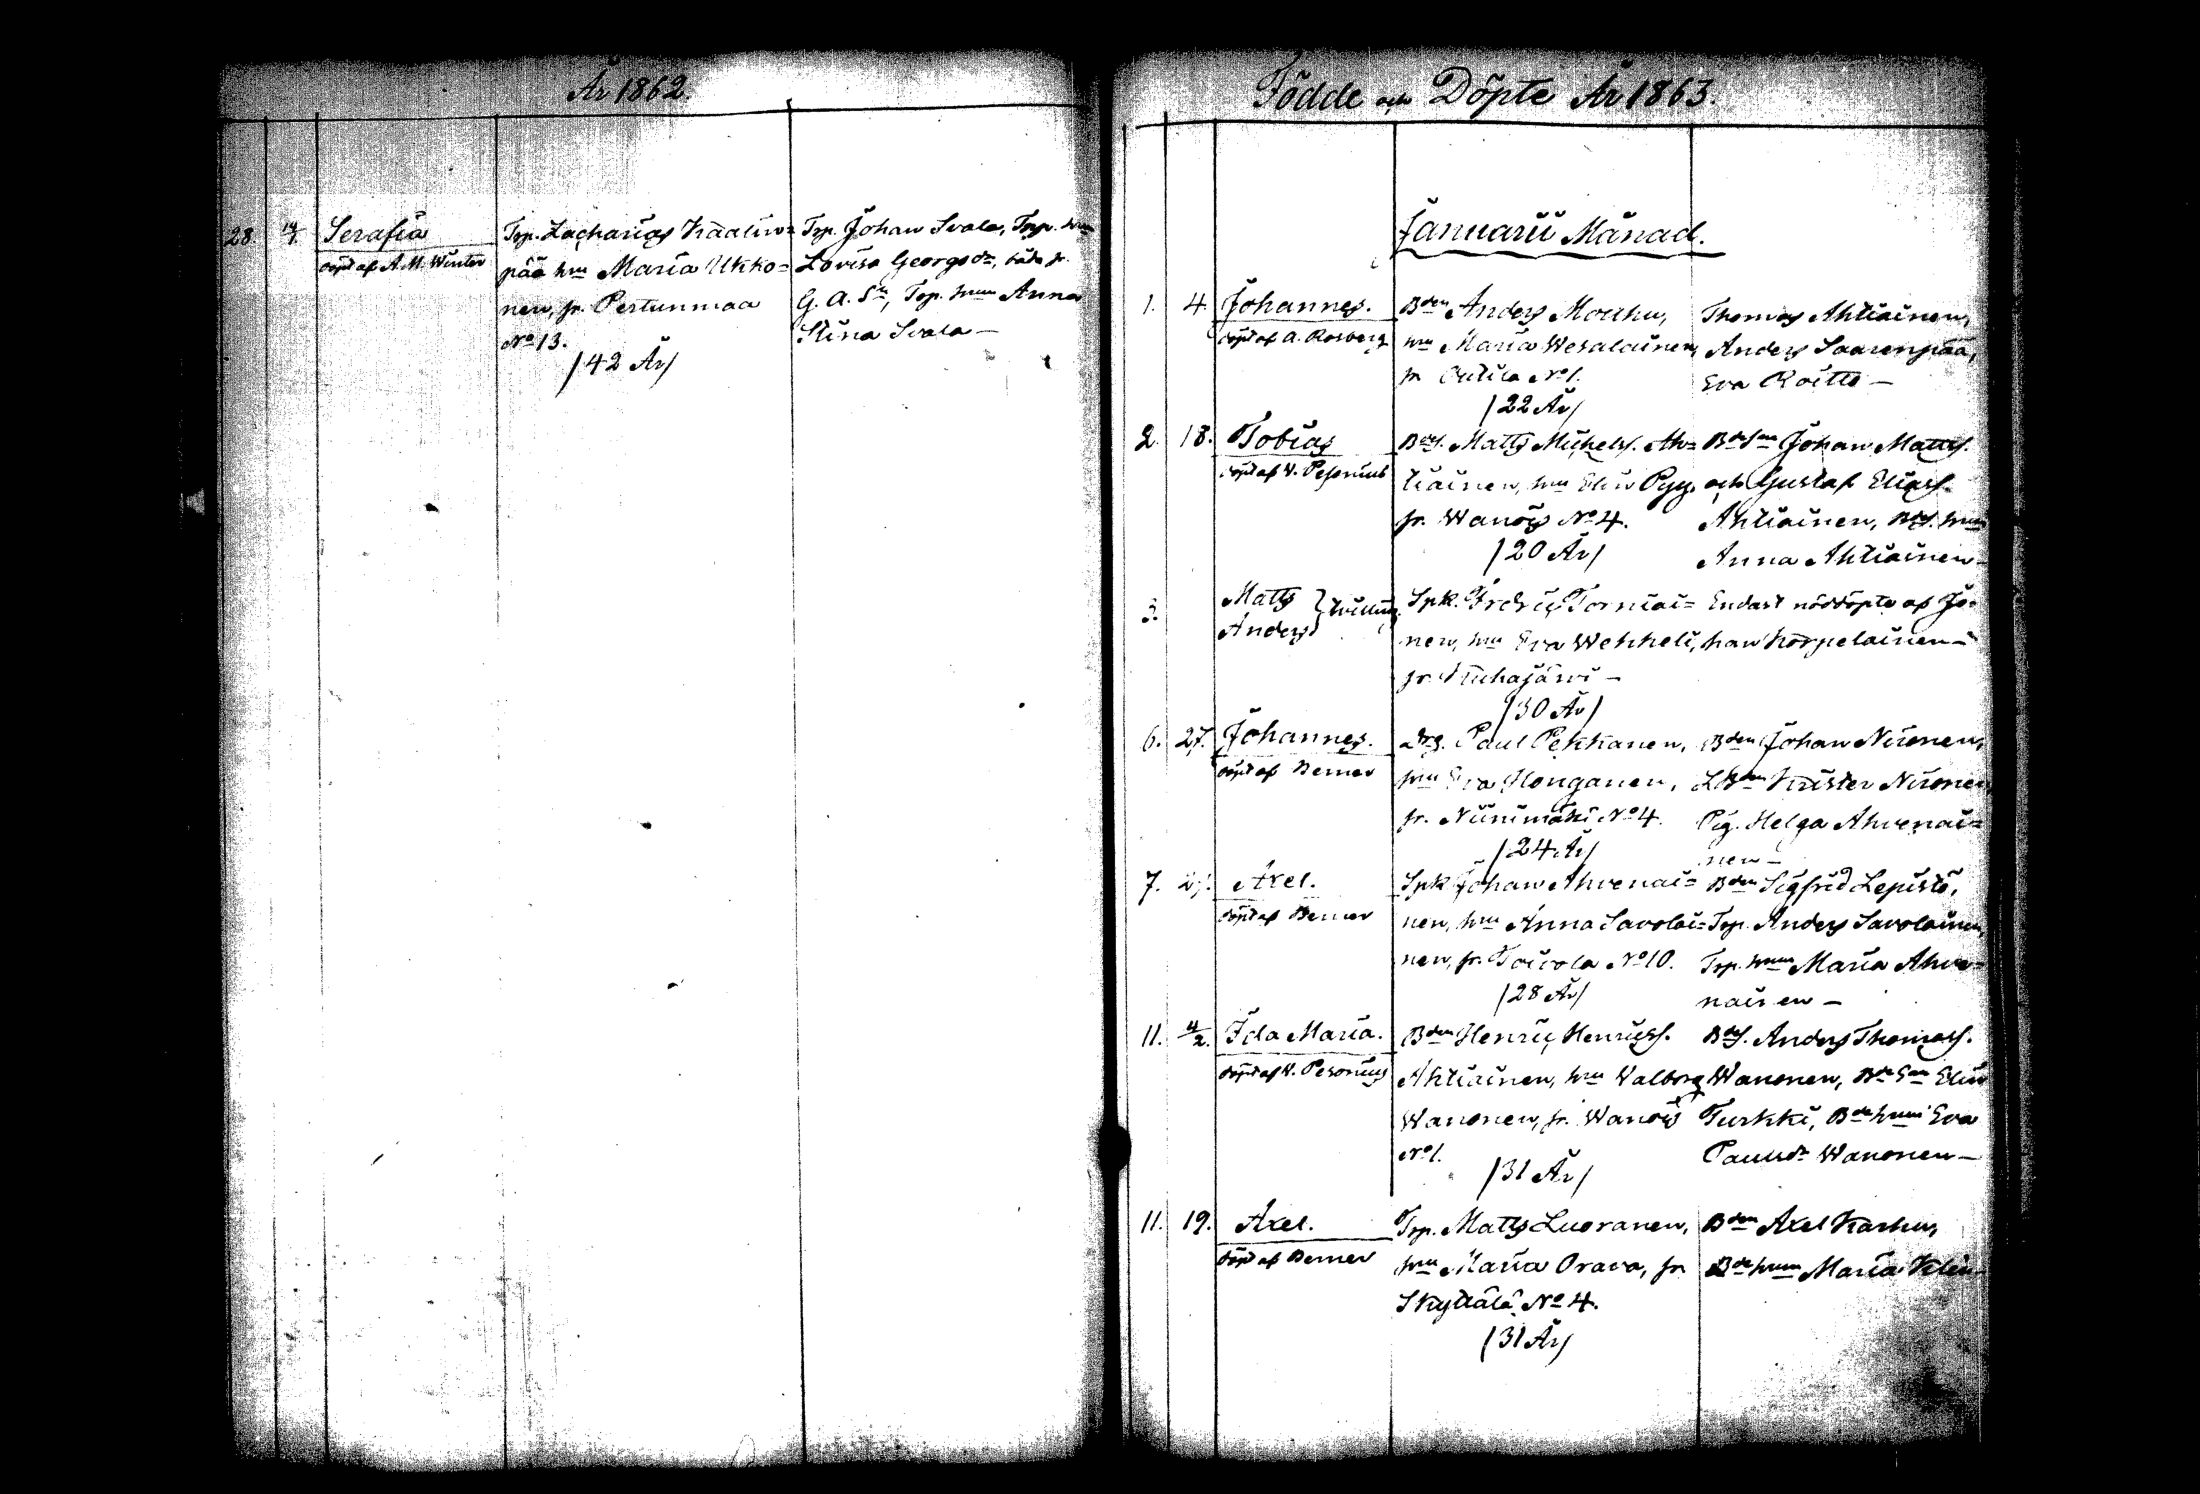 År 1862.
28. Serafia
döpt af A. M. Winter
Trp. Zacharias Kaalin=
pää hru Maria Ukko=
nen, fr. Pertunmaa
No 13.
/42 År/
Trp. Johan Svala, Trp. hru
Lovisa Georgsdr, båda fr.
G. A. Sn, Trp. hrun Anna
Stina Svala —
Födde och Döpte År 1863.
Januarii Månad.
1. 4. Johannes.
döpt af A. Rosberg
Bden Anders Moukku,
hru Maria Wesalainen,
fr No 1.
/22 År/
Thomas Ahtiainen,
Anders Saarenpää,
Eva Roitto —
2. 18. Tobias
döpt af W. Pesonius
Bdes. Matts Michelss. Ah=
tiainen, hru Elin Pyy,
fr. Wanois No 4.
/20 År/
BdeSne Johan Matts.
och Gustaf Eliass.
Ahtiainen, Bds. hrun
Anna Ahtiainen —
3. Matts
Anders } tvilling.
Spk. Fredric Torniai=
nen, hru Eva Wehkeli,
fr. Kuhajärvi —
/30 År/
Endast nöddöpte af Jo=
han Korpelainen —
6. 27. Johannes.
döpt af Berner
Drg. Paul Pekkanen,
hru Eva Honganen,
fr. Niinimäki No 4.
/24 År/
Bden Johan Nironen,
LBden Krister Nironen
Pig. Helga Ahvenai=
nen —
7. 27. Axel.
döpt af Berner
Spk Johan Ahvenai=
nen, hru Anna Savolai=
nen, fr. Toivola No 10.
/28 År/
Bden Sigfrid Lepistö,
Trp. Anders Savolainen,
Trp. hrun Maria Ahve=
nainen —
11. 4/2. Ida Maria.
döpt af W. Pesonius
Bden Henric Henricss.
Ahtiainen, hru Walborg
Wanonen, fr. Wanois
No 1.
/31 År/
Bdes. Anders Thomass.
Wanonen, Bde Sne Elias
Turkki, Bde hrun Eva
Paulsdr Wanonen —
11. 19. Axel.
döpt af Berner
Trp. Matts Luoranen,
hru Maria Orava, fr
Skyttälä No 4.
/31 År/
Bden Axel Karhu,
Bde hrun Maria